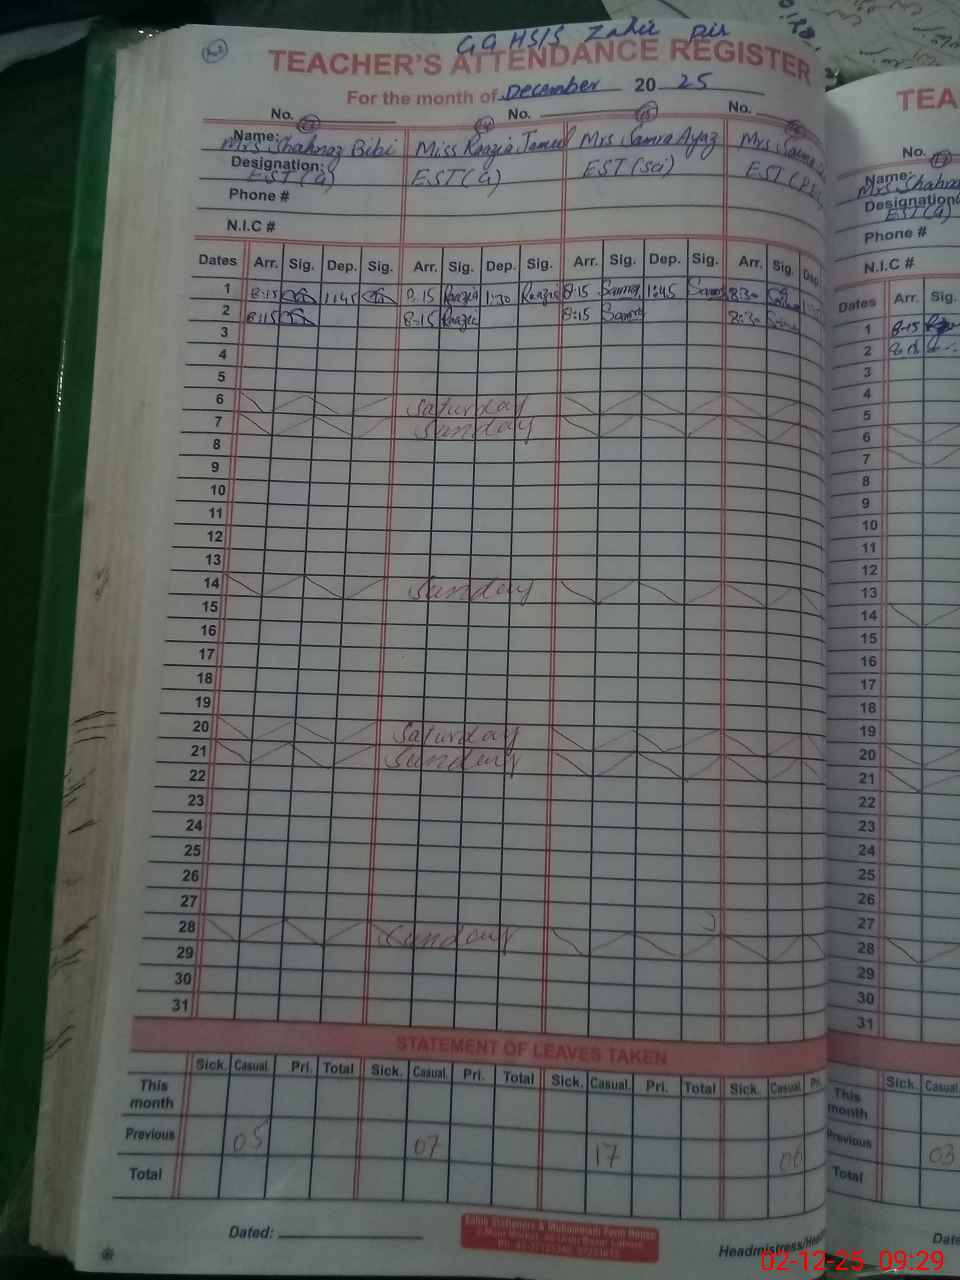 GGHSS Zahir Pir
TEACHER'S ATTENDANCE REGISTER
For the month of December 20 25
No. No. 14 No. 15 No.
Name: Mrs. Shahnaz Bibi Miss Raazia Jameel Mrs Samra Ayaz Mrs
Designation: EST(a) EST(a) EST(Sci) EST
Phone #
N.I.C #
Dates Arr. Sig. Dep. Sig. Arr. Sig. Dep. Sig. Arr. Sig. Dep. Sig. Arr. Sig. Dep
1 8:15 1:45 8:15 Raazia 1:30 Raazia 8:15 Samra 1:45 Samra 8:30
2 8:15 8:15 Raazia 8:15 Samra 8:30
3
4
5
6 Saturday
7 Sunday
8
9
10
11
12
13
14 Sunday
15
16
17
18
19
20 Saturday
21 Sunday
22
23
24
25
26
27
28 Sunday
29
30
31
STATEMENT OF LEAVES TAKEN
Sick. Casual. Pri. Total Sick. Casual. Pri. Total Sick. Casual. Pri. Total Sick. Casual. Pri.
This month
Previous 05 07 17 06
Total
Dated:
Headmistress/Head
TEA
No. 17
Name: Mrs. Shahna
Designation EST(a)
Phone #
N.I.C #
Dates Arr. Sig.
1 8-15
2 8:15
3
4
5
6
7
8
9
10
11
12
13
14
15
16
17
18
19
20
21
22
23
24
25
26
27
28
29
30
31
Sick. Casual
This month
Previous 03
Total
Date
02-12-25 09:29